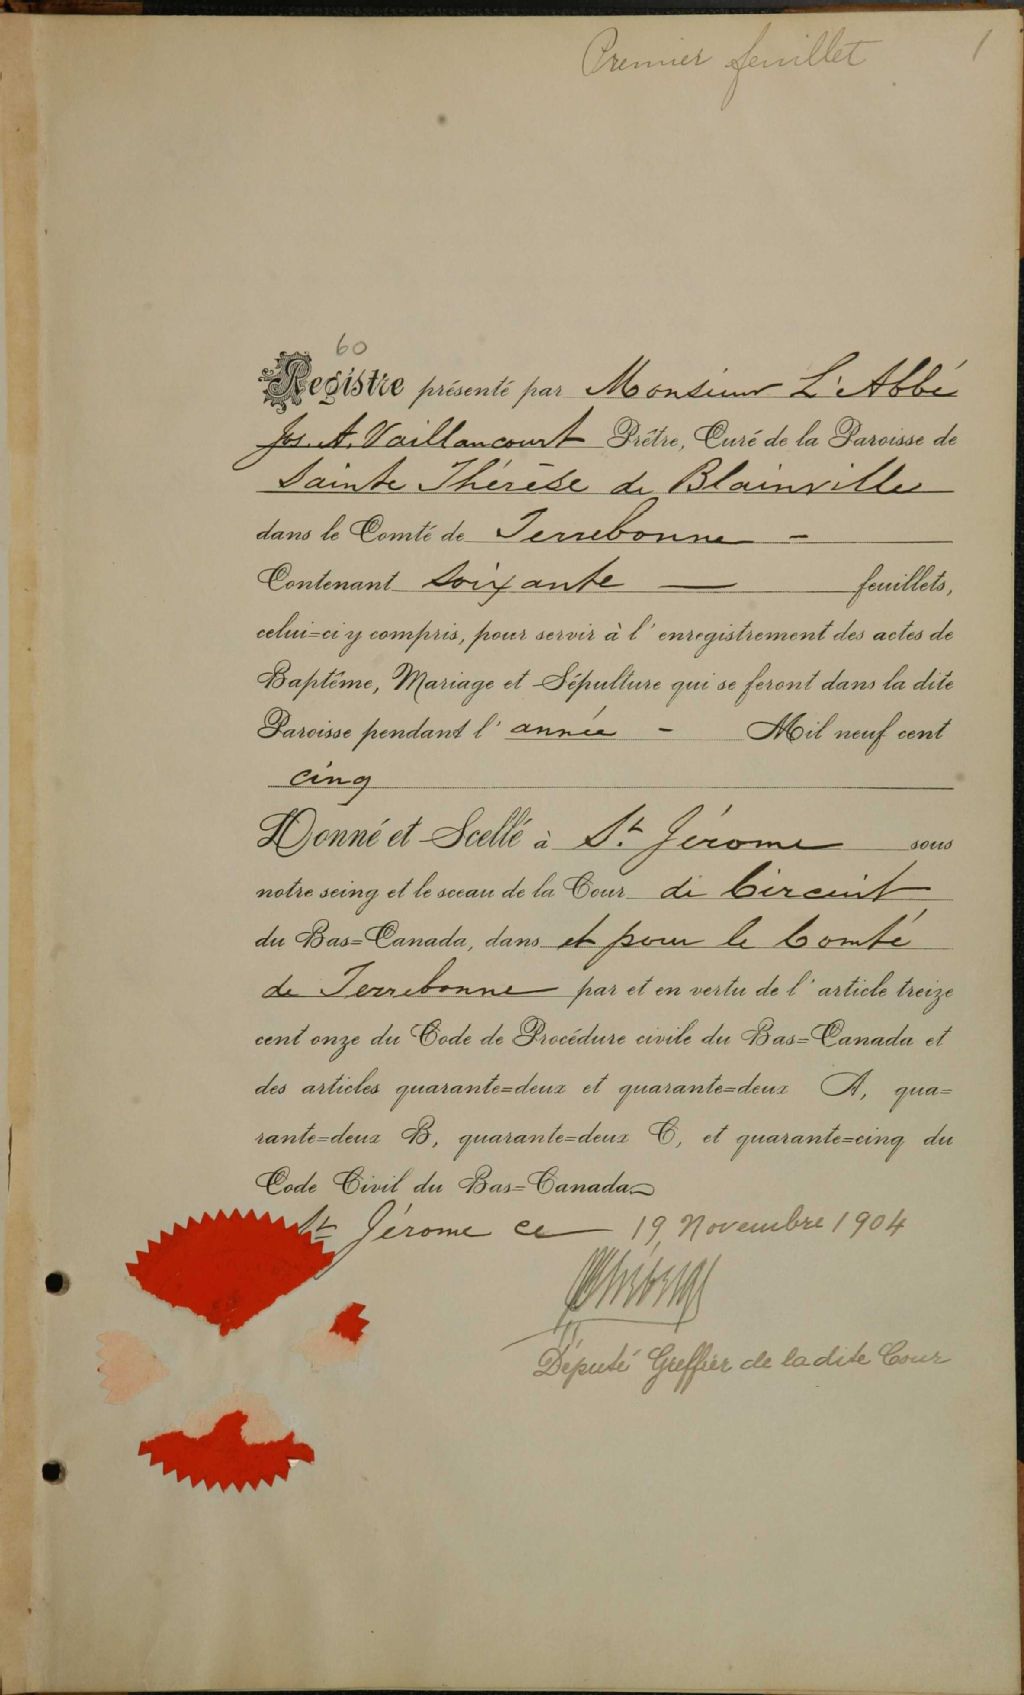 Premier feuillet
1
60
Registre présenté par Monsieur L'Abbé
Jos. A. Vaillancourt Prêtre, Curé de la Paroisse de
Sainte Thérèse de Blainville
dans le Comté de Terrebonne -
Contenant Soixante — feuillets,
celui=ci y compris, pour servir à l'enregistrement des actes de
Baptême, Mariage et Sépulture qui se feront dans la dite
Paroisse pendant l'année - Mil neuf cent
cinq
Donné et Scellé à St. Jérome sous
notre seing et le sceau de la Cour de Circuit
du Bas=Canada, dans et pour le Comté
de Terrebonne par et en vertu de l'article treize
cent onze du Code de Procédure civile du Bas=Canada et
des articles quarante=deux et quarante=deux A, qua=
rante=deux B, quarante=deux C, et quarante=cinq du
Code Civil du Bas=Canada
St Jérome ce — 19, Novembre 1904
Député Greffier de la dite Cour